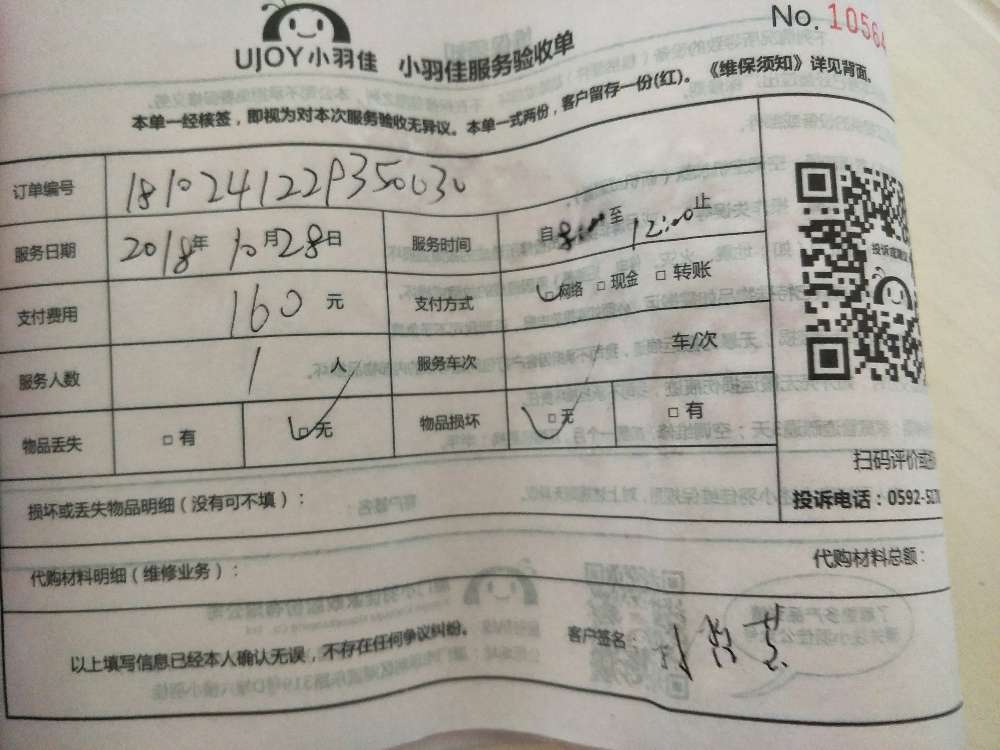 No. 10564
UJOY小羽佳 小羽佳服务验收单
本单一经核签，即视为对本次服务验收无异议。本单一式两份，客户留存一份(红)。《维保须知》详见背面。
订单编号 1810241229350030
服务日期 2018年10月28日 服务时间 自8:00至12:00止
支付费用 160元 支付方式 □网络 □现金 □转账
服务人数 1人 服务车次 车/次
物品丢失 □有 □无 物品损坏 □无 □有
投诉或建议
扫码评价或
投诉电话：0592-52
损坏或丢失物品明细（没有可不填）：
代购材料明细（维修业务）： 代购材料总额：
以上填写信息已经本人确认无误，不存在任何争议纠纷。 客户签名：